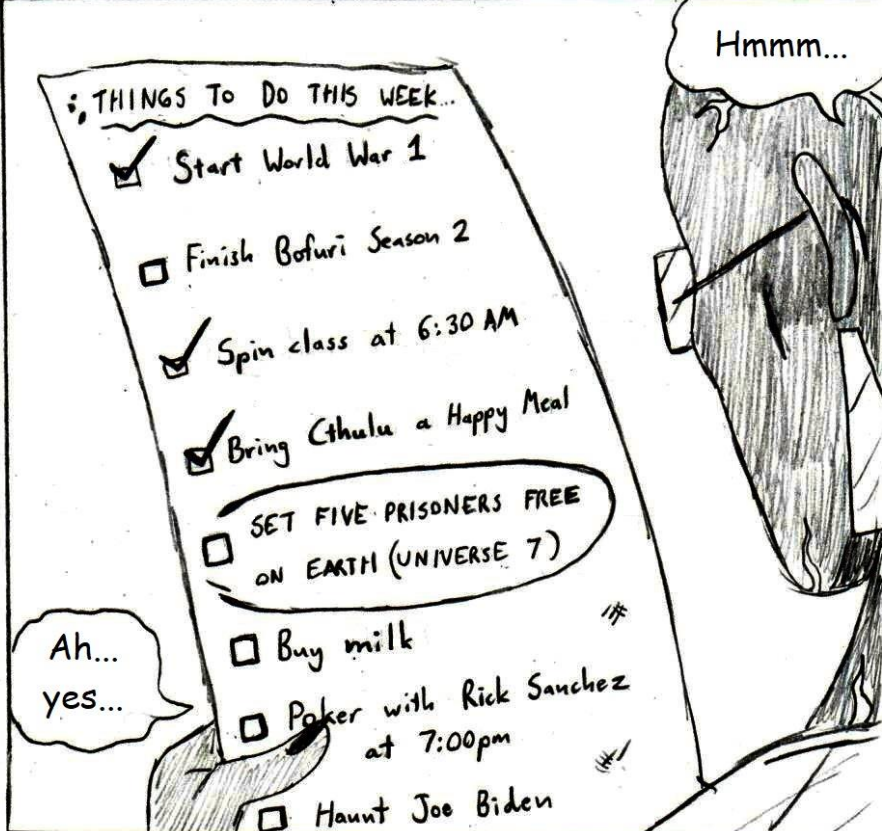 Hmmm...
THINGS TO DO THIS WEEK...
Start World War 1
Finish Bofuri Season 2
Spin class at 6:30 AM
Bring Cthulu a Happy Meal
SET FIVE PRISONERS FREE
ON EARTH (UNIVERSE 7)
Buy milk
Ah...
yes...
Poker with Rick Sanchez
at 7:00pm
Haunt Joe Biden